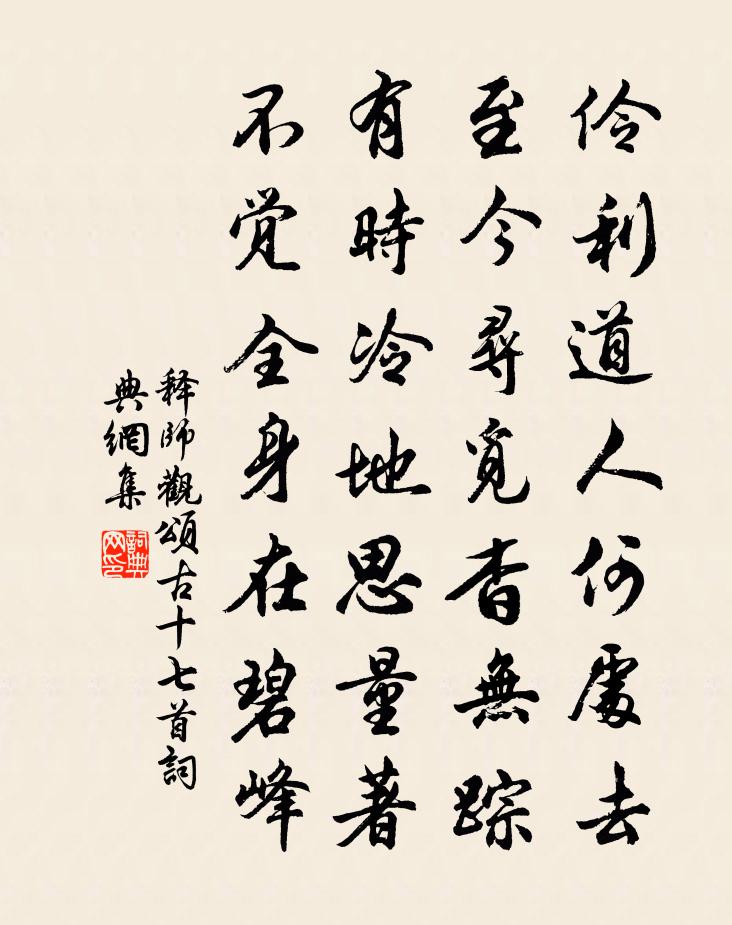 伶利道人何處去
至今尋覓杳無踪
有時冷地思量著
不觉全身在碧峰
释師觀頌古十七首詞
典網集
詞典
网印